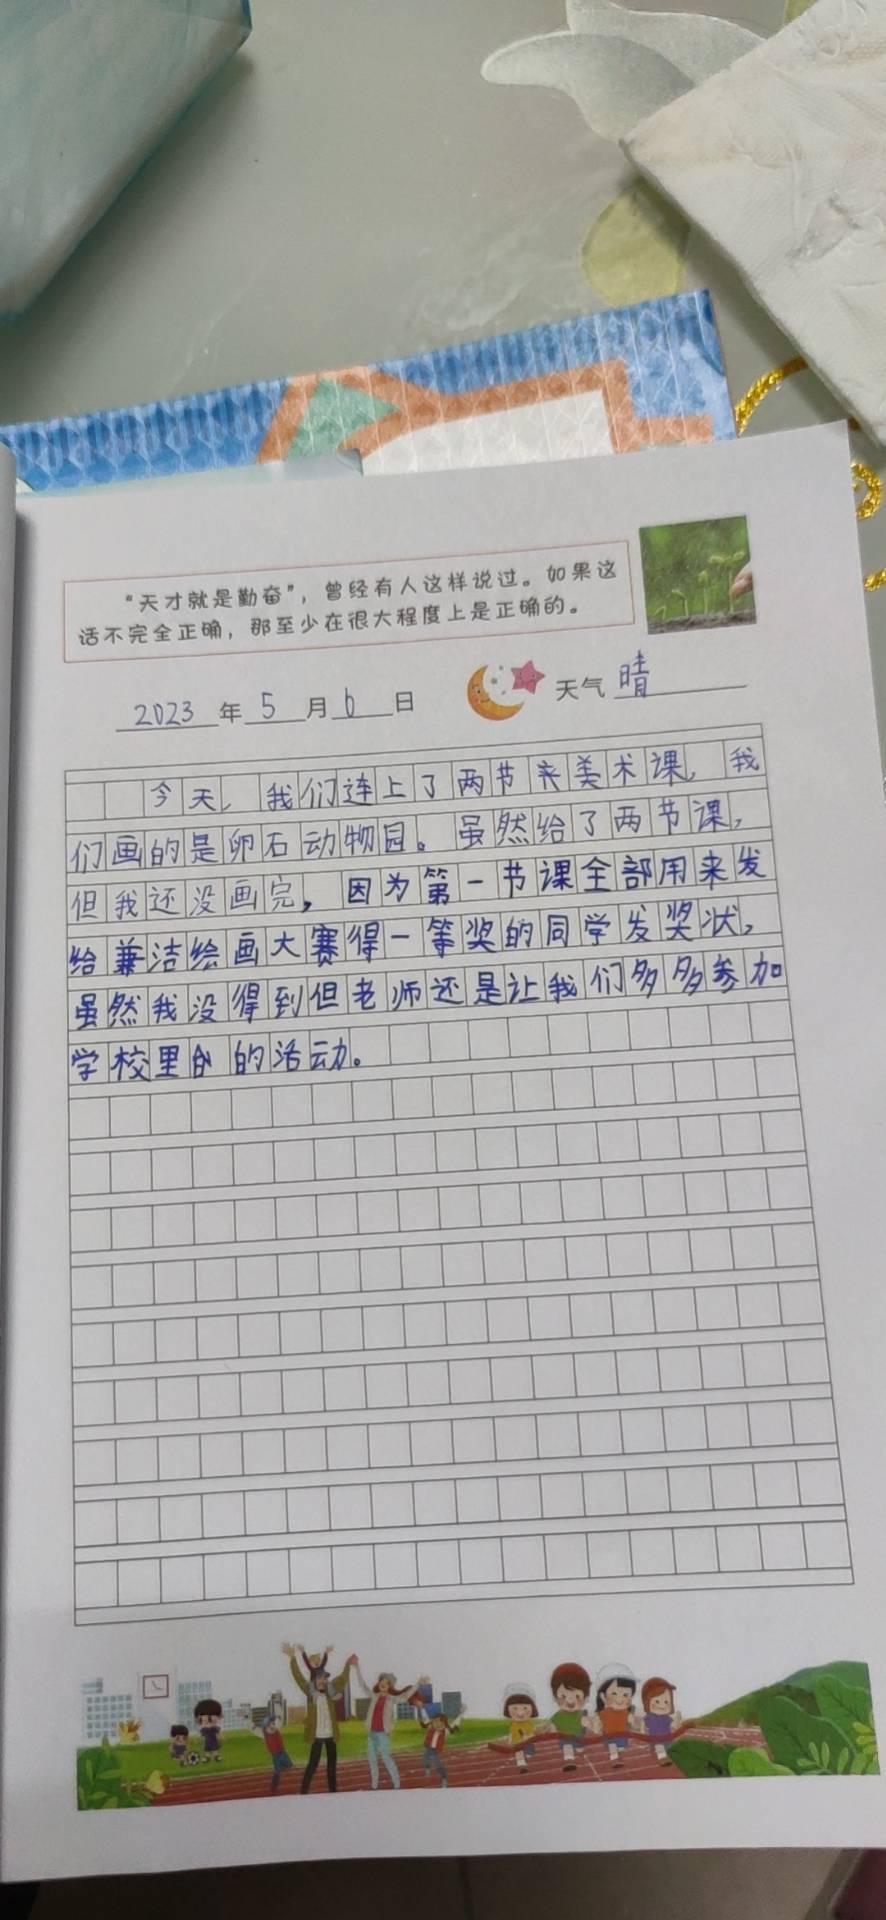 “天才就是勤奋”，曾经有人这样说过。如果这
话不完全正确，那至少在很大程度上是正确的。
2023年5月6日 天气 晴
今天，我们连上了两节美术课，我
们画的是卵石动物园。虽然给了两节课，
但我还没画完，因为第一节课全部用来发
给兼洁绘画大赛得一等奖的同学发奖状，
虽然我没得到但老师还是让我们多多参加
学校里的活动。